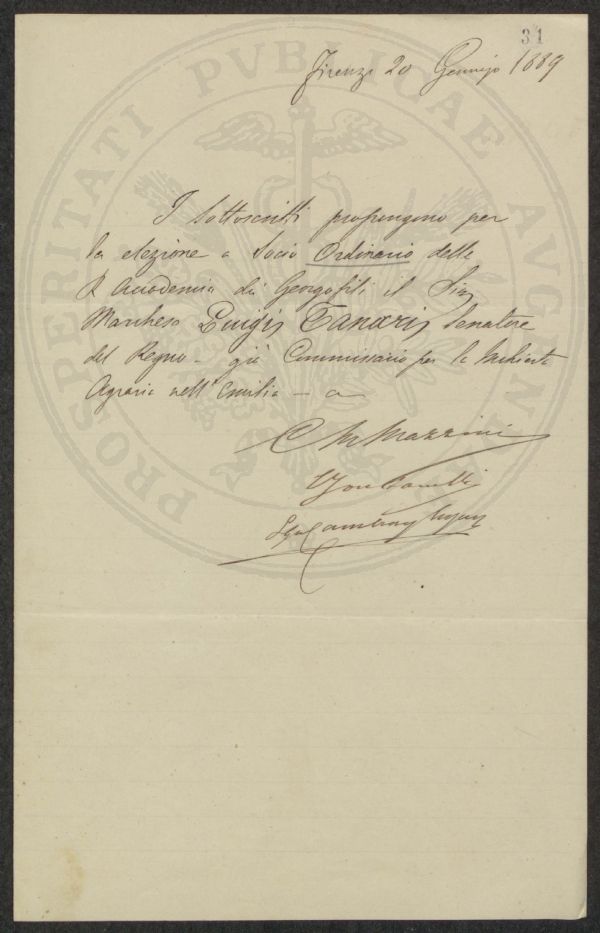 31
Firenze 20 Gennajo 1889
I sottoscritti propongono per
la elezione a Socio Ordinario della
R. Accademia dei Georgofili il Sig.
Marchese Luigi Tanari, Senatore
del Regno - già Commissario per la Inchiesta
Agraria nell' Emilia -
C M Mazzini
Cambray Digny
PROSPERITATI PVBLICAE AVGENDAE